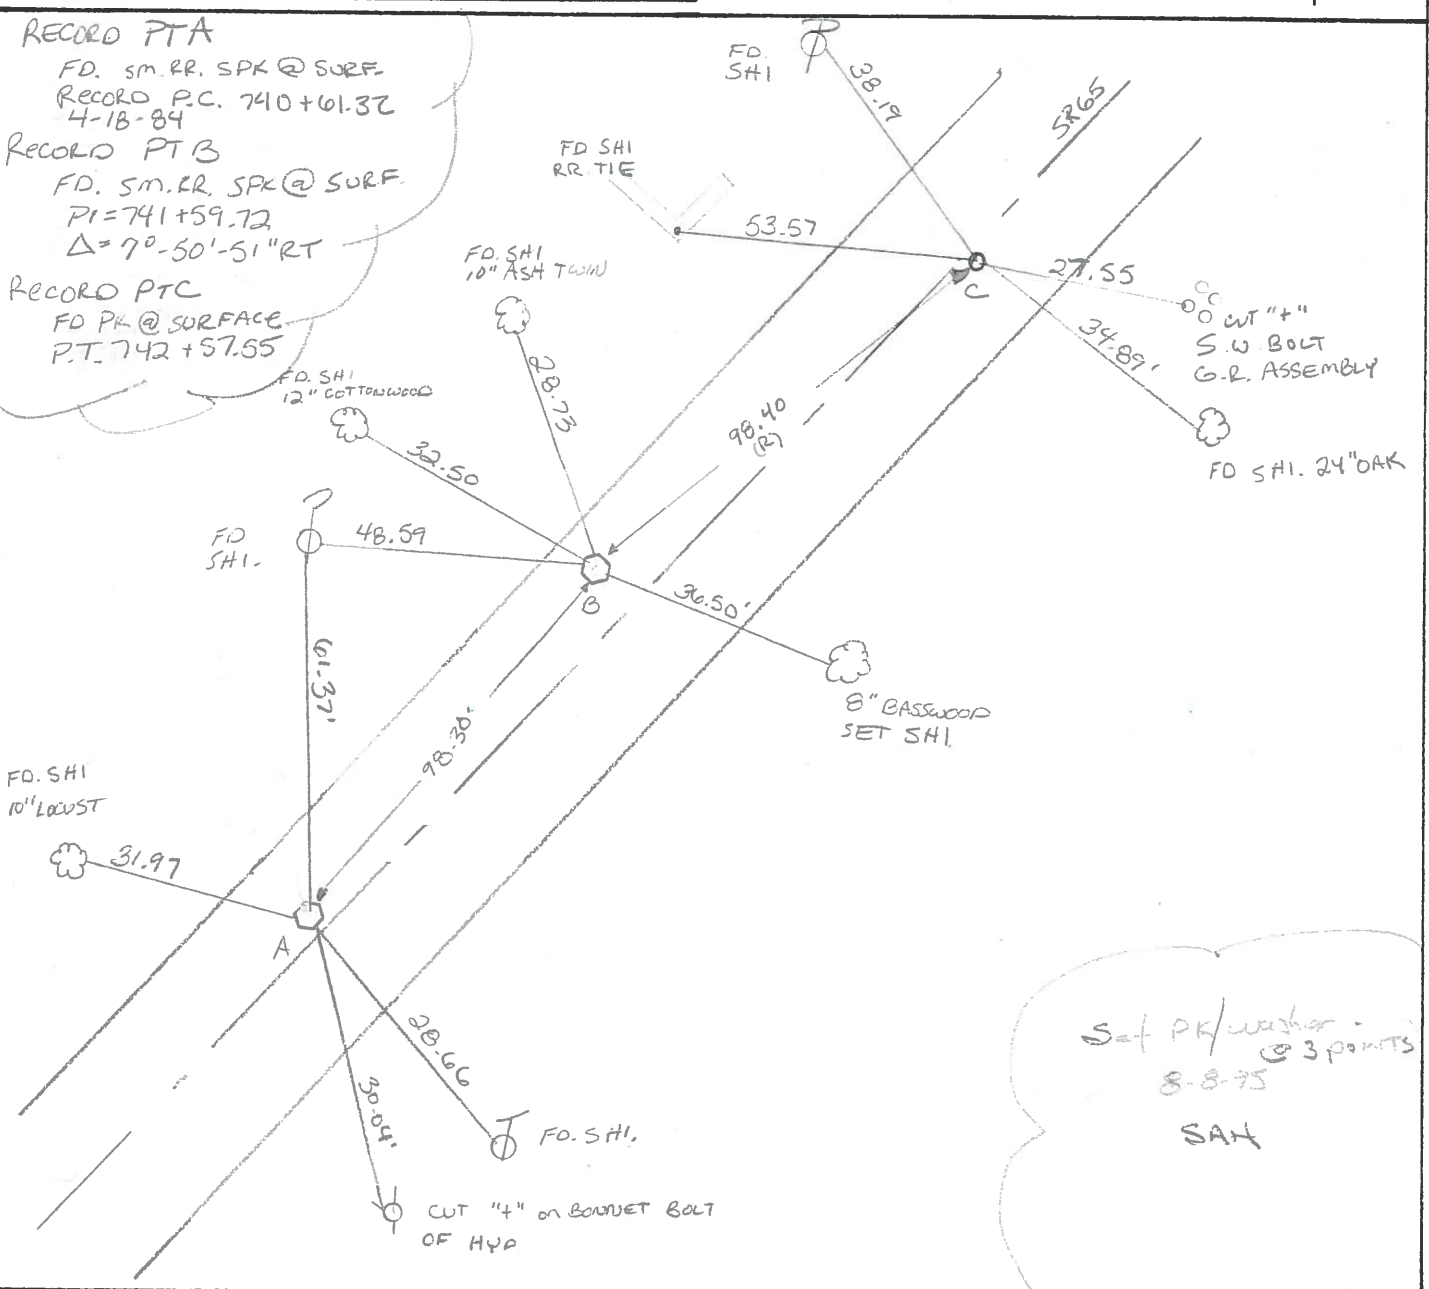 RECORD PT A
FD. SM. RR. SPK @ SURF.
RECORD P.C. 740+61.32
4-18-84
RECORD PT B
FD. SM. RR. SPK @ SURF.
PI = 741+59.72
Δ = 7°-50'-51" RT
RECORD PT C
FD PK @ SURFACE
P.T. 742+57.55
FD.
SH1
38.19
SR65
FD SH1
RR. TIE
53.57
C
27.55
CUT "+"
S.W. BOLT
G.R. ASSEMBLY
34.89'
FD SH1. 24" OAK
FD. SH1
10" ASH TWIN
28.73
FD. SH1
12" COTTONWOOD
32.50
98.40
(R)
FD
SH1.
48.59
B
36.50'
8" BASSWOOD
SET SH1
61.37'
98.30'
FD. SH1
10" LOCUST
31.97
A
28.66
30.04'
FD. SH1.
CUT "+" on BONNET BOLT
OF HYD
Set PK/washer
@ 3 points
SAH